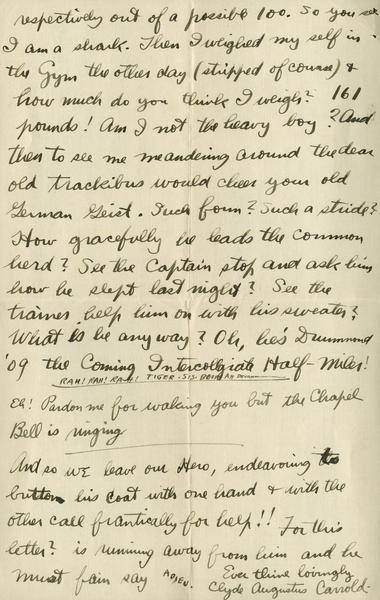 respectively out of a possible 100. So you see
I am a shark. Then I weighed my self in
the Gym the other day (stripped of course) &
how much do you think I weigh? 161
pounds! Am I not the heavy boy? And
then to see me meandering around the dear
old trackibus would cheer your old
German Geist. Such form? Such a stride?
How gracefully he leads the common
herd? See the Captain stop and ask him
how he slept last night? See the
trainer help him on with his sweater?
What is he any way? Oh, he's Drummond
'09 the Coming Intercollegiate Half-Miler!
RAH! RAH! RAH! TIGER-SIS-BOOM AH
Eh! Pardon me for waking you but the Chapel
Bell is ringing
And so we leave our Hero, endeavoring to
button his coat with one hand & with the
other call frantically for help!! For this
letter? is running away from him and he
must fain say ADIEU.
Ever thine lovingly
Clyde Augustus Carrold-